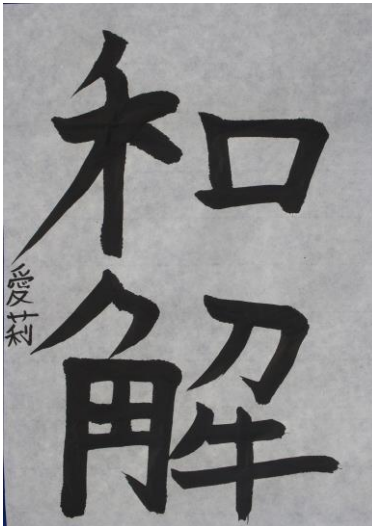 和解
愛莉